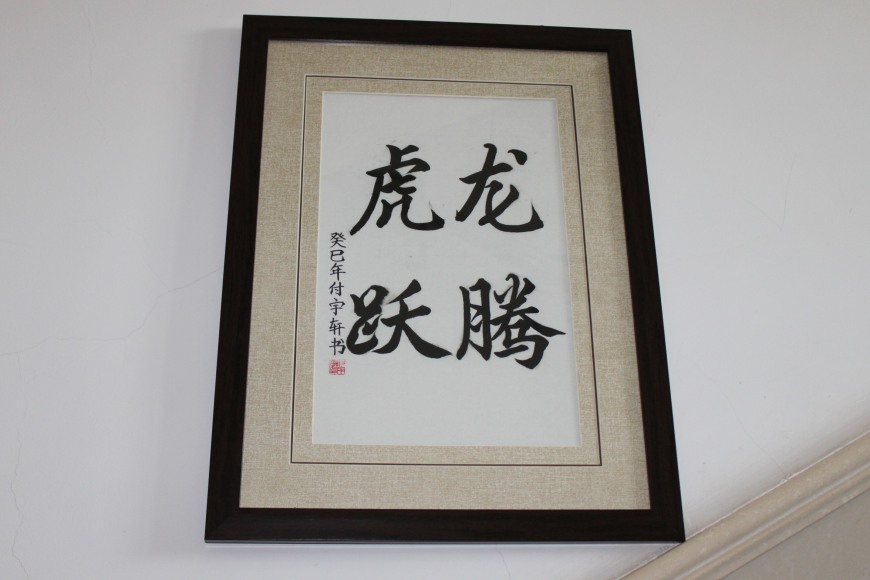 龙腾
虎跃
癸巳年付宇轩书